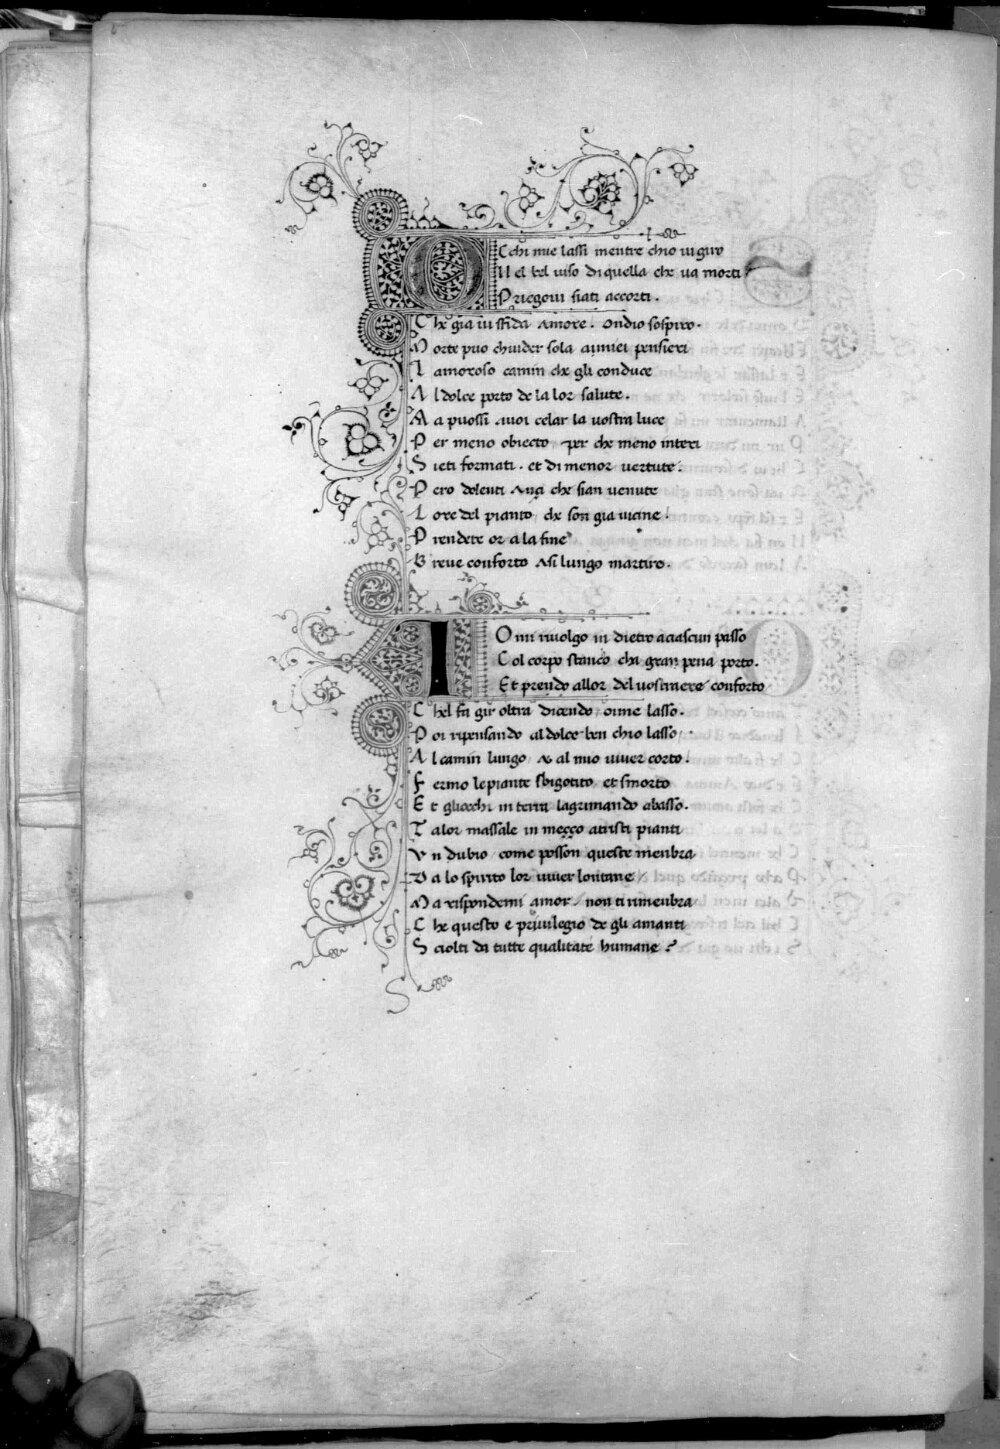 O Cchi mie lassi mentre chio vi giro
N el bel viso di quella che va morti
P riegovi siati accorti .
C he gia vi sfida Amore . Ondio sospiro .
M orte puo chiuder sola a imiei pensieri
L amoroso camin che gli conduce
A l dolce porto de la lor salute .
M a puossi avoi celar la vostra luce
P er meno obiecto per che meno interi
S ieti formati . et di menor vertute .
P ero dolenti Ançi che sian venute
L ore del pianto / che son gia vicine .
P rendete or a la fine
B reve conforto Asi lungo martiro .
I O mi rivolgo in dietro aciascun passo
C ol corpo stanco cha gran pena porto .
E t prendo allor del vostraere conforto
C hel fa gir oltra dicendo oime lasso .
P oi ripensando al dolce ben chio lasso /
A l camin lungo / & al mio viver corto .
F ermo le piante sbigotito et smorto
E t gliocchi in terra lagrimando abasso .
T alor massale in meçço atristi pianti
U n dubio / come posson queste menbra
D a lo spirito lor viver lontane /
M a rispondemi amor / non ti rimenbra
C he questo e privilegio de gli amanti
S ciolti da tutte qualitate humane ?